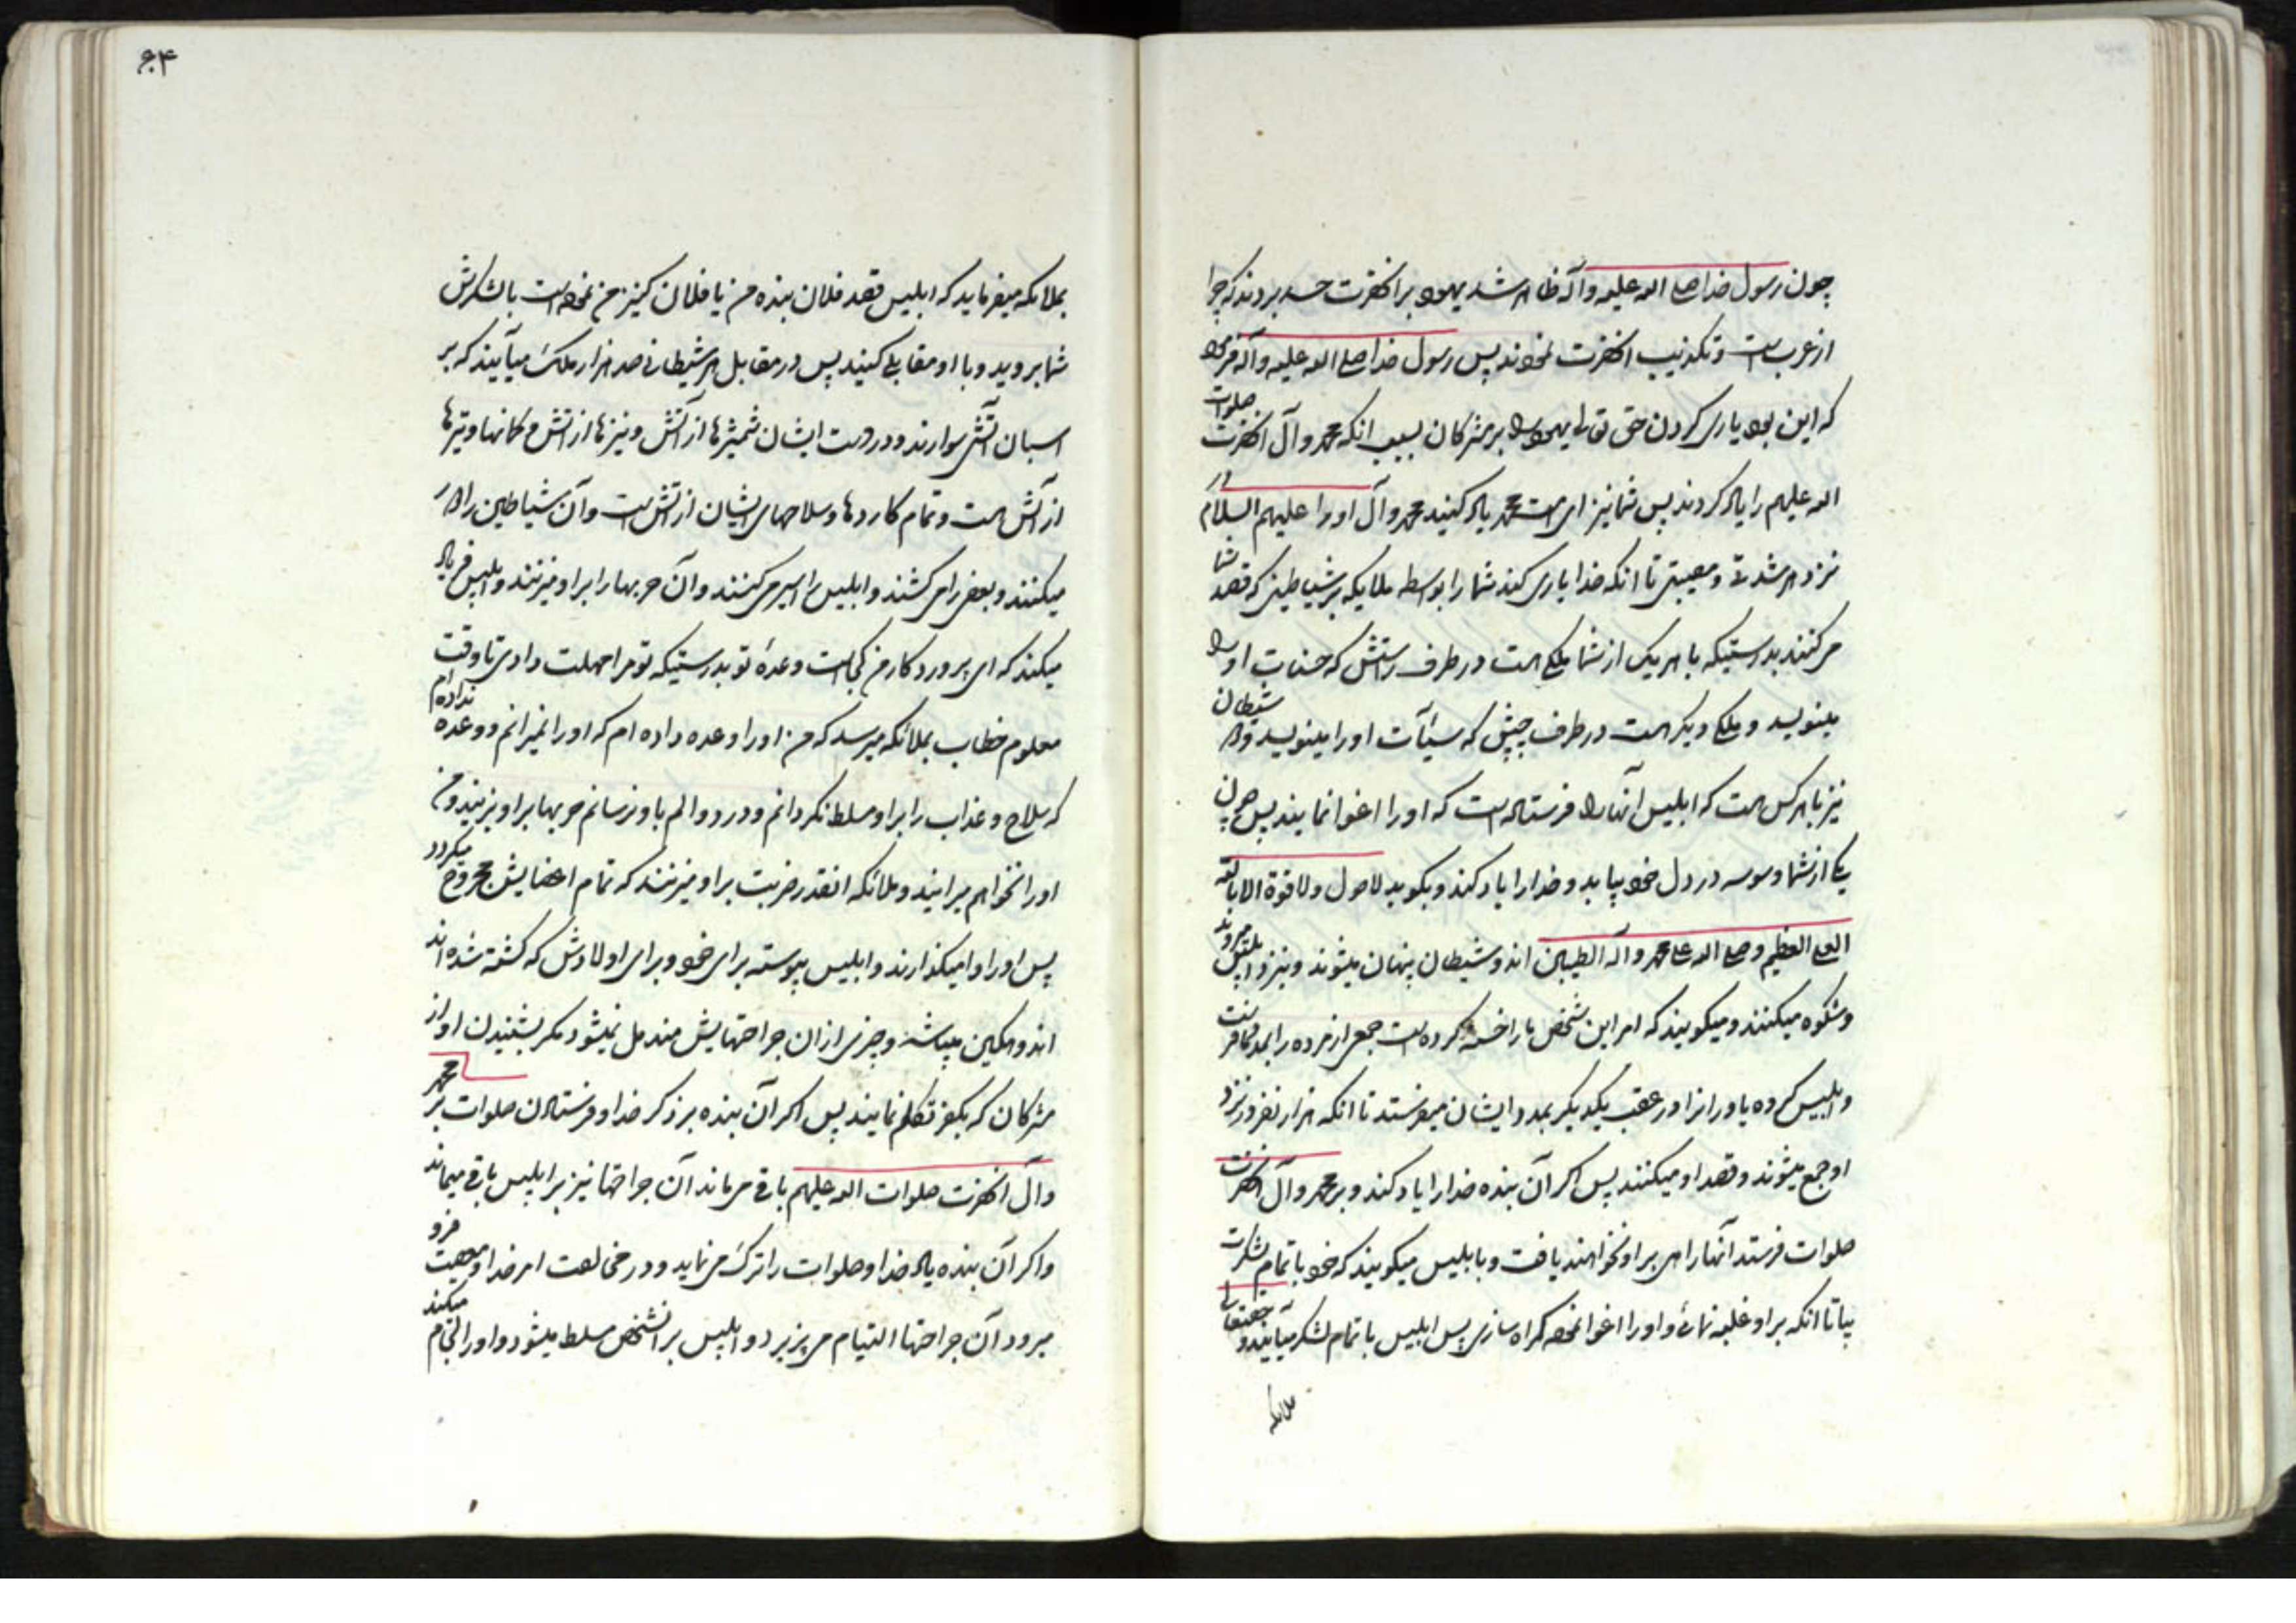 چون رسول خدا صلی الله علیه و آله ظاهر شد یهود بر آنحضرت حسد بردند که چرا
از عرب است و تکذیب آنحضرت نمودند پس رسول خدا صلی الله علیه و آله فرمود
که این بود یاری کردن حق تعالی یهود را بر مشرکان بسبب آنکه محمد و آل آنحضرت صلوات
الله علیهم را یاد کردند پس شما نیز ای امت محمد یاد کنید محمد و آل او را علیهم السلام در
نزد هر شدتی و مصیبتی تا آنکه خدا یاری کند شما را بواسطه ملایکه بر شیاطینی که قصد شما
می‌کنند بدرستیکه با هر یک از شما ملکی هست در طرف راستش که حسنات او را
مینویسد و ملکی دیگر هست در طرف چپش که سیّآت او را مینویسد و دو شیطان
نیز با هر کس هست که ابلیس آنها را فرستاده است که او را اغوا نمایند پس چون
یکی از شما وسوسه در دل خود بیابد و خدا را یاد کند و بگوید لا حول و لا قوة الا بالله
العلی العظیم و صلی الله علی محمد و آله الطیبین آن دو شیطان پنهان میشوند و بنزد ابلیس میروند
و شکوه میکنند و میگویند که امر این شخص ما را خسته کرده است جمعی از مرده را بمدد ما فرست
و ابلیس مرده یاوران را در عقب یکدیگر بمدد ایشان میفرستد تا آنکه هزار نفر در نزد
او جمع میشوند و قصد او میکنند پس اگر آن بنده خدا را یاد کند و بر محمد و آل آنحضرت
صلوات فرستد آنها راهی بر او نخواهند یافت و با ابلیس میگویند که خود با تمام لشکرت
بیا تا آنکه بر او غلبه نمائی و او را اغوا نموده گمراه سازی پس ابلیس با تمام لشکر میآیند و حقتعالی
ملائکه
۶۴
بملائکه میفرماید که ابلیس قصد فلان بنده من یا فلان کنیز من نموده است با لشکرش
شما بروید و با او مقابلی کنید پس در مقابل هر شیطانی صد هزار ملک میآیند که بر
اسبان آتشی سوارند و در دست ایشان شمشیرها از آتش و نیزها از آتش و کمانها و تیرها
از آتش است و تمام کاردها و سلاحهای ایشان از آتش است و آن شیاطین را دور
میکنند و بعضی را می‌کشند و ابلیس را اسیر می‌کنند و آن حربها را بر او میزنند و ابلیس فریاد
میکند که ای پروردگار من کجاست وعدۀ تو بدرستیکه تو مرا مهلت دادی تا وقت
معلوم خطاب بملائکه میرسد که من او را وعده داده ام که او را نمیرانم و وعده نداده ام
که سلاح و عذاب را بر او مسلط نگردانم و درد و الم باو نرسانم حربها بر او بزنید و من
او را نخواهم میرانید و ملائکه آنقدر ضربت بر او میزنند که تمام اعضایش مجروح میگردد
پس او را وا میگذارند و ابلیس پیوسته برای خود و برای اولادش که کشته شده اند
اندوهگین میباشد و چیزی از آن جراحتهایش مندمل نمیشود مگر بشنیدن آواز
مشرکان که بکفر تکلم نمایند پس اگر آن بنده بر ذکر خدا و فرستادن صلوات بر محمد
و آل آنحضرت صلوات الله علیهم باقی می‌ماند آن جراحتها نیز بر ابلیس باقی میماند
و اگر آن بنده یاد خدا و صلوات را ترک می‌نماید و در مخالفت امر خدا و معصیت فرو
میرود آن جراحتها التیام می‌پذیرد و ابلیس بر آن شخص مسلط میشود و او را لجام میکند